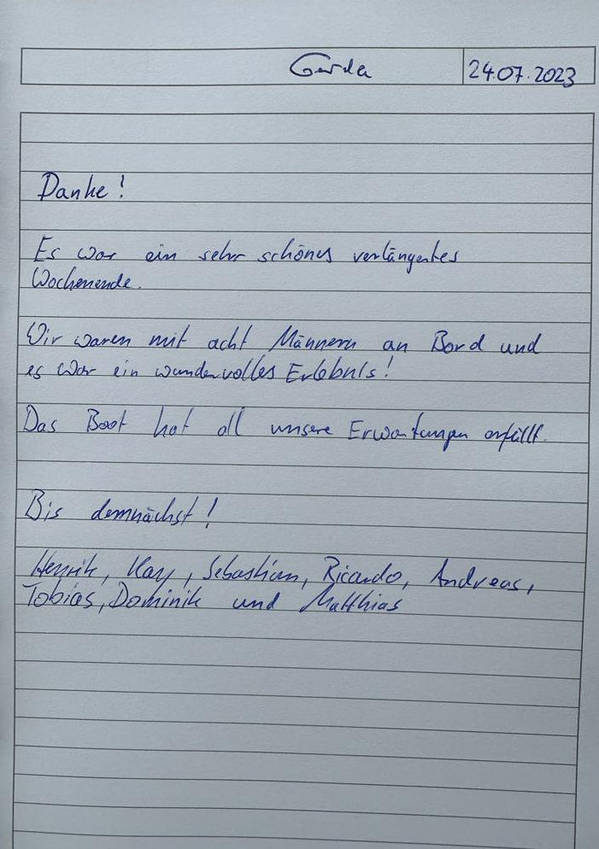 Gerda 24.07.2023
Danke!
Es war ein sehr schönes verlängertes
Wochenende.
Wir waren mit acht Männern an Bord und
es war ein wundervolles Erlebnis!
Das Boot hat all unsere Erwartungen erfüllt.
Bis demnächst!
Henrik, Kay, Sebastian, Ricardo, Andreas,
Tobias, Dominik und Matthias